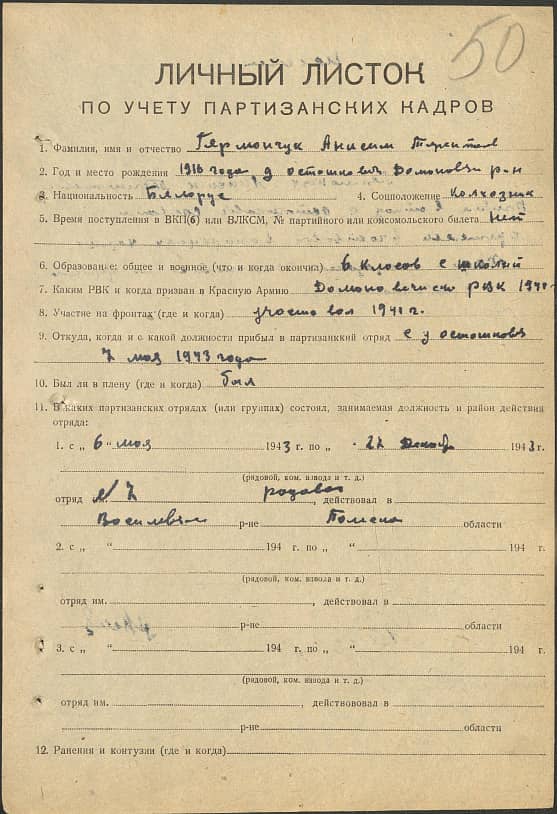 50
ЛИЧНЫЙ ЛИСТОК
ПО УЧЕТУ ПАРТИЗАНСКИХ КАДРОВ
1. Фамилия, имя и отчество Гермончук Анисим
2. Год и место рождения 1916 года д осташкович Домоновичи р-н
3. Национальность Белорус 4. Соцположение Колхозник
5. Время поступления в ВКП(б) или ВЛКСМ, № партийного или комсомольского билета Нет
6. Образование: общее и военное (что и когда окончил) 6 Класов с школый
7. Каким РВК и когда призван в Красную Армию РВК 1941
8. Участие на фронтах (где и когда) участвовал 1941 г.
9. Откуда, когда и с какой должности прибыл в партизанкий отряд с д
7 мая 1943 года
10. Был ли в плену (где и когда) был
11. В каких партизанских отрядах (или группах) состоял, занимаемая должность и район действия
отряда:
1. с „ 6 " мая 1943 г. по „ 27 1943 г.
(рядовой, ком. взвода и т. д.)
отряд №7 родовой, действовал в
р-не области
2. с „ " 194 г. по „ " 194 г.
(рядовой, ком. взвода и т. д.)
отряд им. , действовал в
р-не области
3. с „ " 194 г. по „ " 194 г.
(рядовой, ком. взвода и т. д.)
отряд им. , действовал в
р-не области
12. Ранения и контузии (где и когда)